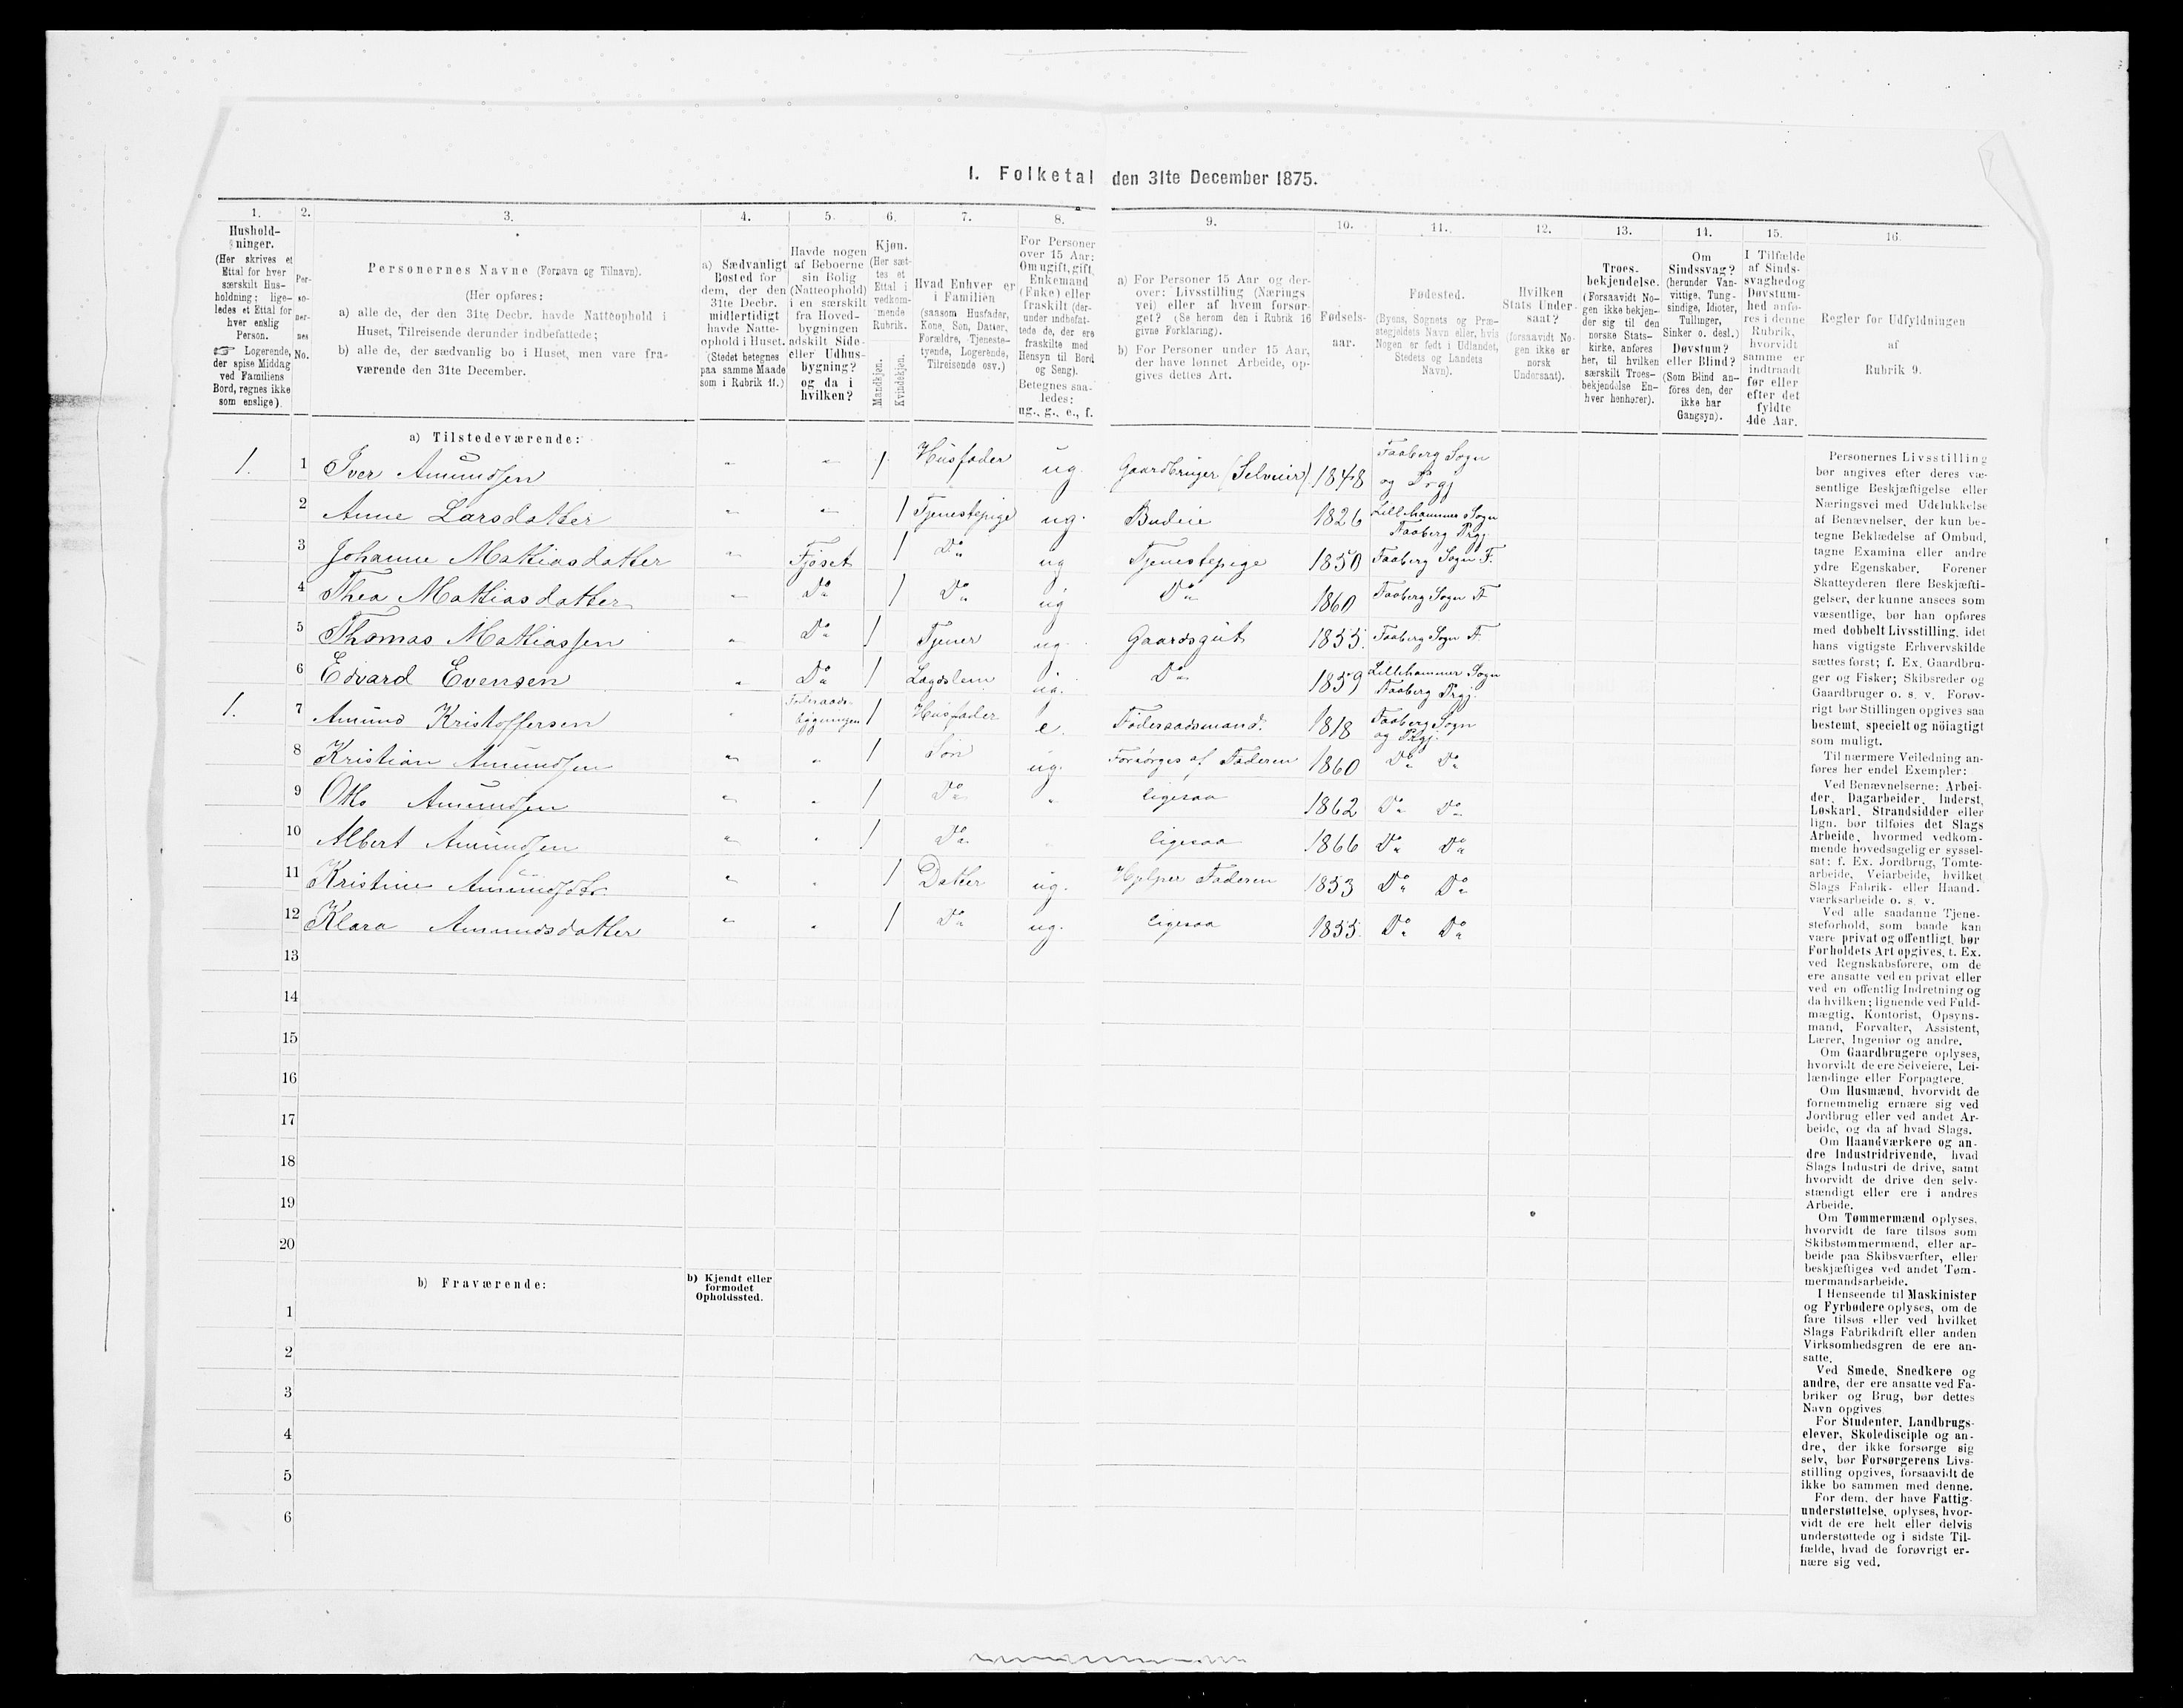 I. Folketal den 31te December 1875.
1.
Hushold-
ninger.
(Her skrives et
Ettal for hver
særskilt Hus-
holdning; lige-
ledes et Ettal for
hver enslig
Person.
☞ Logerende,
der spise Middag
ved Familiens
Bord, regnes ikke
som enslige).
2.
Per-
so-
ner-
nes
No.
3.
Personernes Navne (Fornavn og Tilnavn).
(Her opføres:
a) alle de, der den 31te Decbr. havde Natteophold i
Huset, Tilreisende derunder indbefattede;
b) alle de, der sædvanlig bo i Huset, men vare fra-
værende den 31te December.
4.
a) Sædvanligt
Bosted for
dem, der den
31te Decbr.
midlertidigt
havde Natte-
ophold i Huset.
(Stedet betegnes
paa samme Maade
som i Rubrik 11.)
5.
Havde nogen
af Beboerne
sin Bolig
(Natteophold)
i en særskilt
fra Hoved-
bygningen
adskilt Side-
eller Udhus-
bygning?
og da i
hvilken?
6.
Kjøn.
(Her sæt-
tes et
Ettal i
vedkom-
mende
Rubrik.
Mandkjøn.
Kvindekjøn.
7.
Hvad Enhver er
i Familien
(saasom Husfader,
Kone, Søn, Datter,
Forældre, Tjeneste-
tyende, Logerende,
Tilreisende osv.)
8.
For Personer
over 15 Aar:
Om ugift, gift,
Enkemand
(Enke) eller
fraskilt (der-
under indbefat-
tede de, der ere
fraskilte med
Hensyn til Bord
og Seng).
Betegnes saa-
ledes:
ug., g., e., f.
9.
a) For Personer 15 Aar og der-
over: Livsstilling (Nærings-
vei) eller af hvem forsør-
get? (Se herom den i Rubrik 16
givne Forklaring).
b) For Personer under 15 Aar,
der have lønnet Arbeide, op-
gives dettes Art.
10.
Fødsels-
aar.
11.
Fødested.
(Byens, Sognets og Præ-
stegjeldets Navn eller, hvis
Nogen er født i Udlandet,
Stedets og Landets
Navn).
12.
Hvilken
Stats Under-
saat?
(forsaavidt No-
gen ikke er
norsk
Undersaat).
13.
Troes-
bekjendelse.
(Forsaavidt No-
gen ikke bekjen-
der sig til den
norske Stats-
kirke, anføres
her, til hvilken
særskilt Troes-
bekjendelse En-
hver henhører).
14.
Om
Sindssvag?
(herunder Van-
vittige, Tung-
sindige, Idioter,
Tullinger,
Sinker o. desl.)
Døvstum?
eller Blind?
(Som Blind an-
föres den, der
ikke har
Gangsyn).
15.
I Tilfælde
af Sinds-
svaghed og
Døvstum-
hed anfø-
res i denne
Rubrik,
hvorvidt
samme er
indtraadt
før eller
efter det
fyldte
4de Aar.
16.
Regler for Udfyldningen
af
Rubrik 9.
a) Tilstedeværende:
1. 1 Iver Amundsen „ „ 1 Husfader ug. Gaardbruger (Selveier) 1848 Faaberg Sogn
og Prgj
2 Anne Larsdatter „ „ 1 Tjenestepige ug. Budeie 1826 Lillehammer Sogn
Faaberg Prgj.
3 Johanne Mathiasdatter „ Fjøset 1 Do ug Tjenestepige 1850 Faaberg Sogn F.
4 Thea Mathiasdatter „ Do 1 Do ug Do 1860 Faaberg Sogn F
5 Thomas Mathiassen „ Do 1 Tjener ug. Gaardsgut 1855. Faaberg Sogn F.
6 Edvard Evensen „ Do 1 Lægdslem ug. Do 1859 Lillehammer Sogn
Faaberg Prgj.
1. 7 Amund Kristoffersen „ Føderaads-
bygningen 1 Husfader e. Føderaadsmand. 1818 Faaberg Sogn
og Prgj.
8 Kristian Amundsen „ „ 1 Søn ug. Forsørges af Faderen 1860 Do Do
9 Otto Amundsen „ „ 1 Do „ ligesaa 1862 Do Do
10 Albert Amundsen „ „ 1 Do ligesaa 1866 Do Do
11 Kristine Amundsdtr „ „ 1 Datter ug. Hjelper Faderen 1853 Do Do
12 Klara Amundsdatter „ „ 1 Do ug. ligesaa 1855. Do Do
13
14
15
16
17
18
19
20
b) Fraværende:
b) Kjendt eller
formodet
Opholdssted.
1
2
3
4
5
6
Personernes Livsstilling
bør angives efter deres væ-
sentlige Beskjæftigelse eller
Næringsvei med Udelukkelse
af Benævnelser, der kun be-
tegne Beklædelse af Ombud,
tagne Examina eller andre
ydre Egenskaber. Forener
Skatteyderen flere Beskjæfti-
gelser, der kunne ansees som
væsentlige, bør han opføres
med dobbelt Livsstilling, idet
hans vigtigste Erhvervskilde
sættes først; f. Ex. Gaardbru-
ger og Fisker; Skibsreder og
Gaardbruger o. s. v. Forøv-
rigt bør Stillingen opgives saa
bestemt, specielt og nöiagtigt
som muligt.
Til nærmere Veiledning an-
føres her endel Exempler:
Ved Benævnelserne: Arbei-
der, Dagarbeider, Inderst,
Løskarl, Strandsidder eller
lign. bør tilføies det Slags
Arbeide, hvormed vedkom-
mende hovedsagelig er syssel-
sat: f. Ex. Jordbrug, Tomte-
arbeide, Veiarbeide, hvilket
Slags Fabrik- eller Haand-
værksarbeide o. s. v.
Ved alle saadanne Tjene-
steforhold, som baade kan
være privat og offentligt, bør
Forholdets Art opgives, t. Ex.
ved Regnskabsførere, om de
ere ansatte ved en privat eller
ved en offentlig Indretning og
da hvilken; lignende ved Fuld-
mægtig, Kontorist, Opsyns-
mand, Forvalter, Assistent,
Lærer, Ingeniør og andre.
Om Gaardbrugere oplyses,
hvorvidt de ere Selveiere, Lei-
lændinge eller Forpagtere.
Om Husmænd, hvorvidt de
fornemmelig ernære sig ved
Jordbrug eller ved andet Ar-
beide, og da af hvad Slags.
Om Haandværkere og an-
dre Industridrivende, hvad
Slags Industri de drive, samt
hvorvidt de drive den selv-
stændigt eller ere i andres
Arbeide.
Om Tømmermænd oplyses,
hvorvidt de fare tilsøs som
Skibstømmermænd, eller ar-
beide paa Skibsværfter, eller
beskjæftiges ved andet Tøm-
mermandsarbeide.
I Henseende til Maskinister
og Fyrbødere oplyses, om de
fare tilsøs eller ved hvilket
Slags Fabrikdrift eller anden
Virksomhedsgren de ere an-
satte.
Ved Smede, Snedkere og
andre, der ere ansatte ved Fa-
briker og Brug, bør dettes
Navn opgives
For Studenter, Landbrugs-
elever, Skoledisciple og an-
dre, der ikke forsørge sig
selv, bør Forsørgerens Livs-
stilling opgives, forsaavidt de
ikke bo sammen med denne.
For dem, der have Fattig-
understøttelse, oplyses, hvor-
vidt de ere helt eller delvis
understøttede og i sidste Til-
fælde, hvad de forøvrigt er-
nære sig ved.